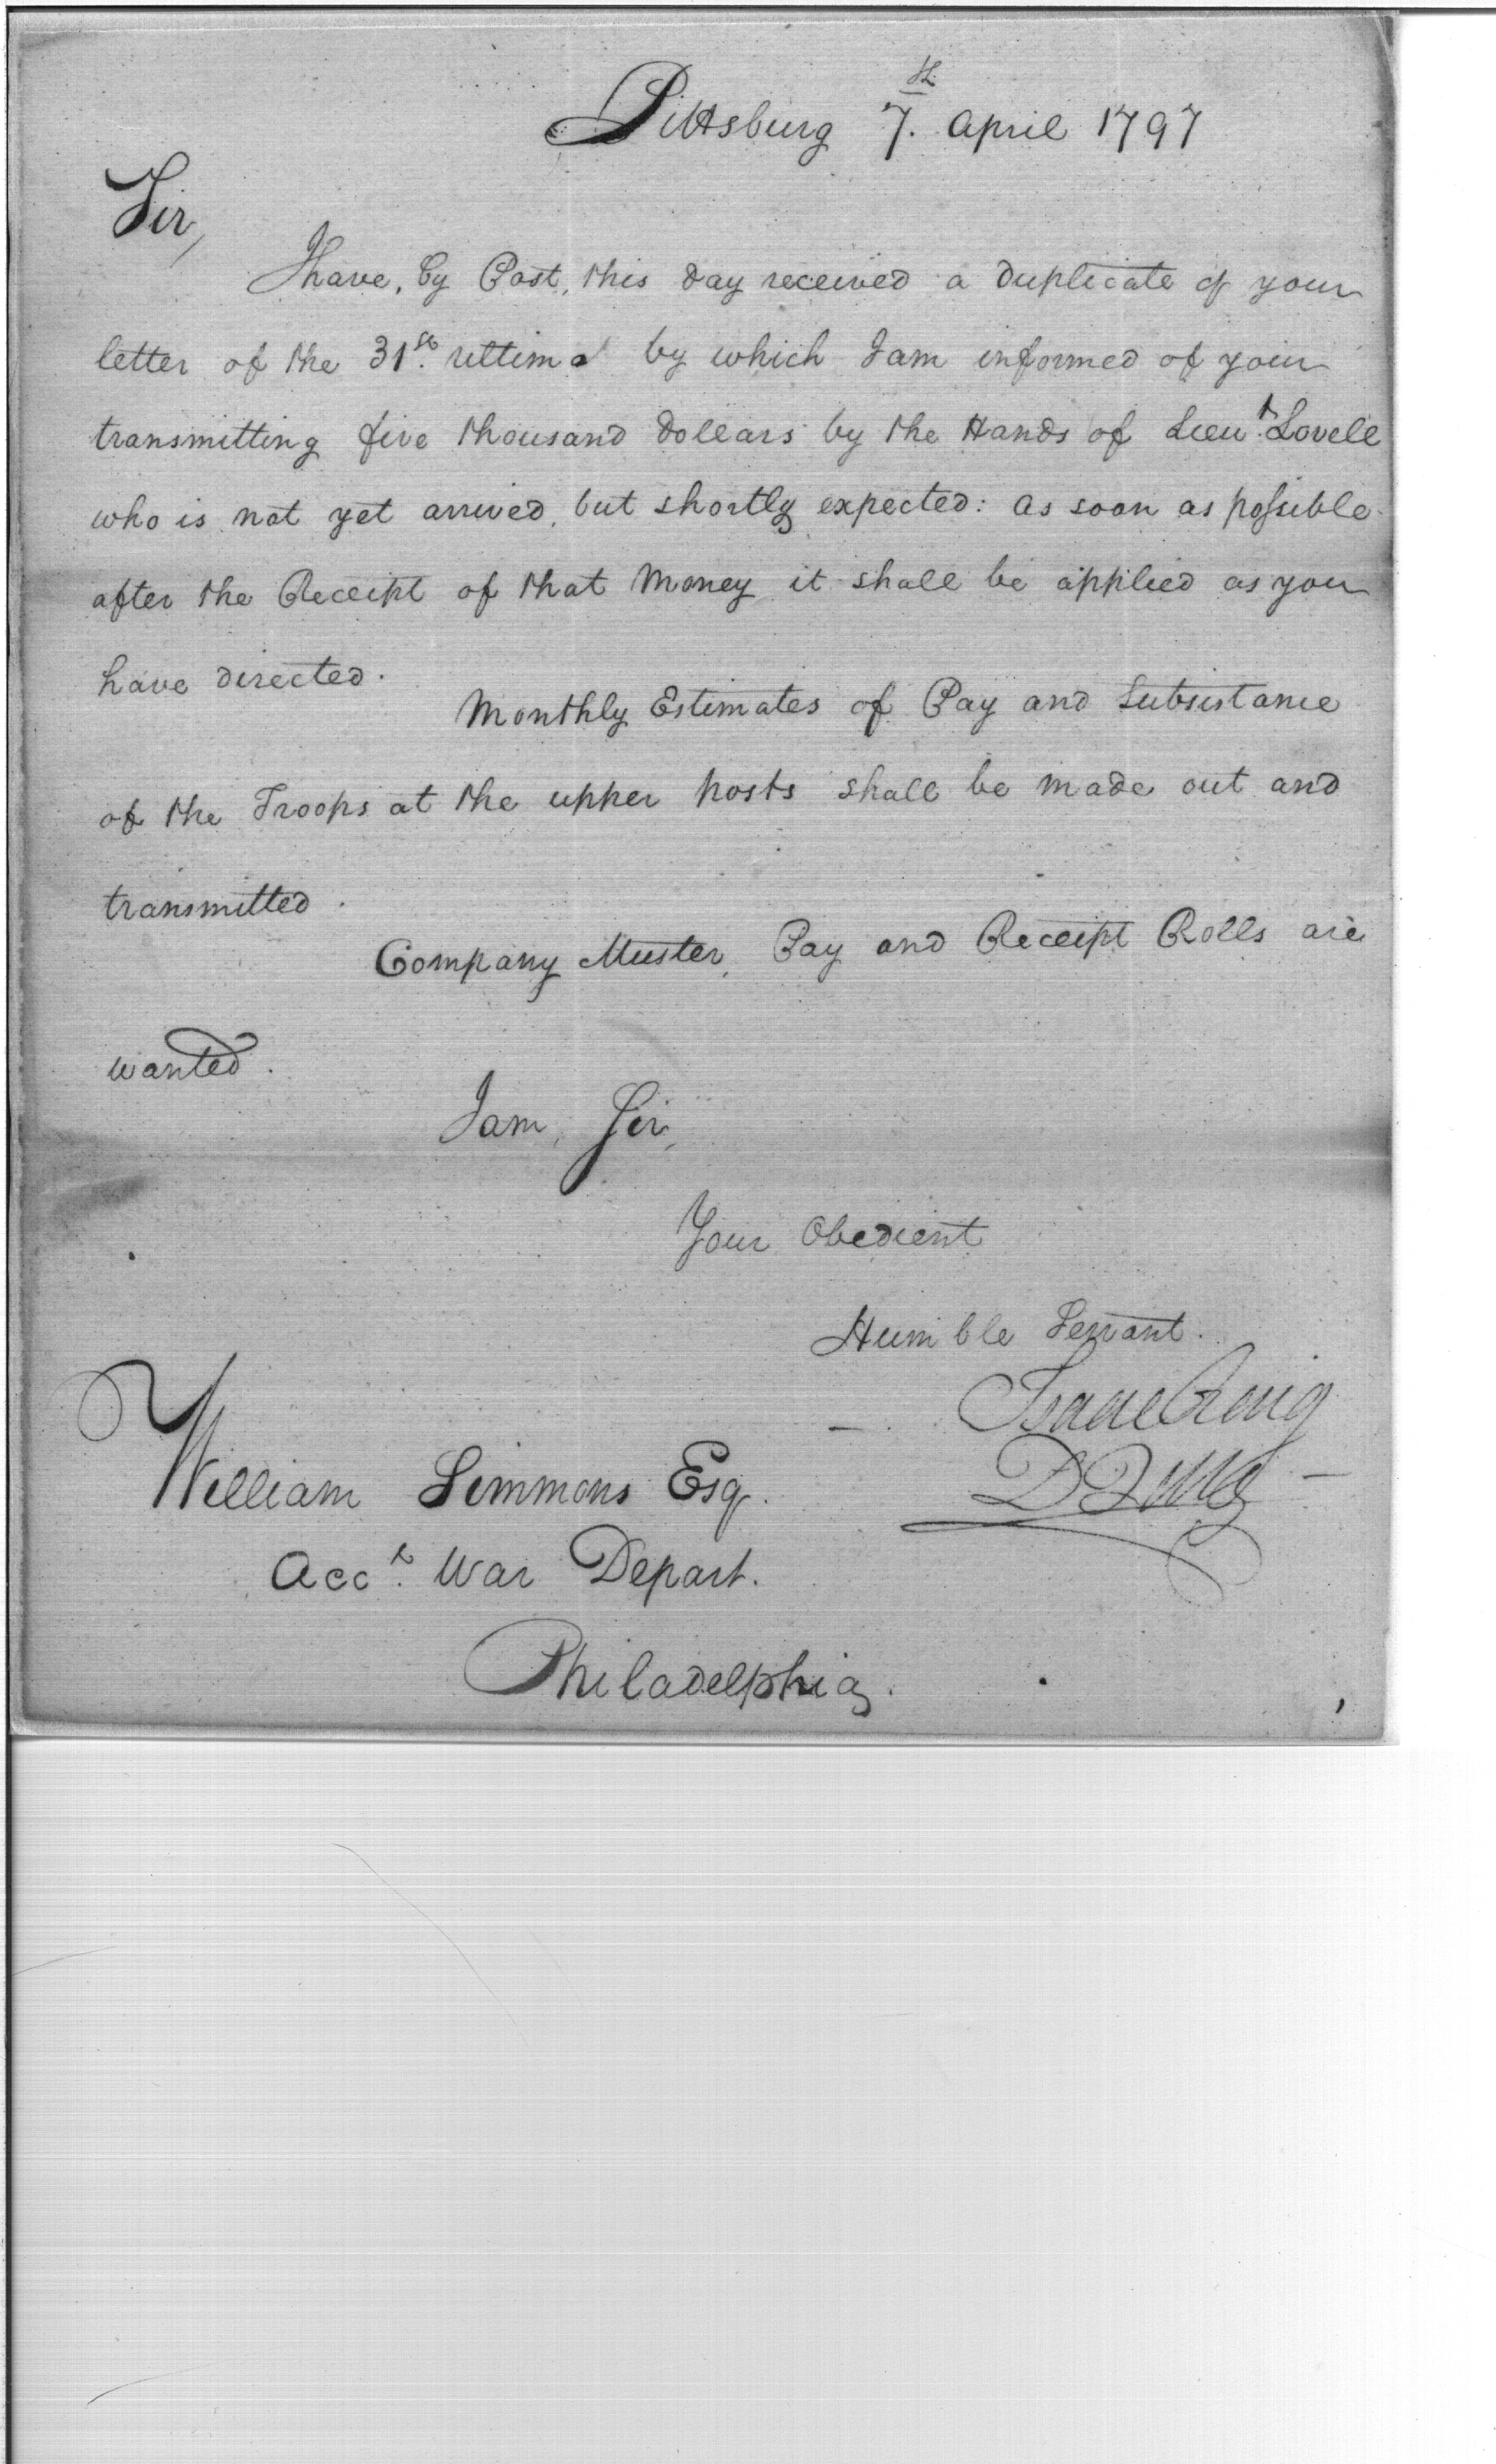 Pittsburg 7th. April 1797
Sir,
I have, by Post, this day received a duplicate of your
letter of the 31st. ultimo by which I am informed of your
transmitting five thousand Dollars by the Hands of Lieut. Lovell
who is not yet arrived, but shortly expected: as soon as possible
after the Receipt of that Money it shall be applied as you
have directed.
Monthly Estimates of Pay and Subsistance
of the Troops at the upper posts shall be made out and
transmitted.
Company Muster, Pay and Receipt Rolls are
wanted.
I am, Sir,
Your Obedient
Humble Servant.
Isaac Craig
D Q M G
William Simmons Esq.
Acct. War Depart.
Philadelphia.